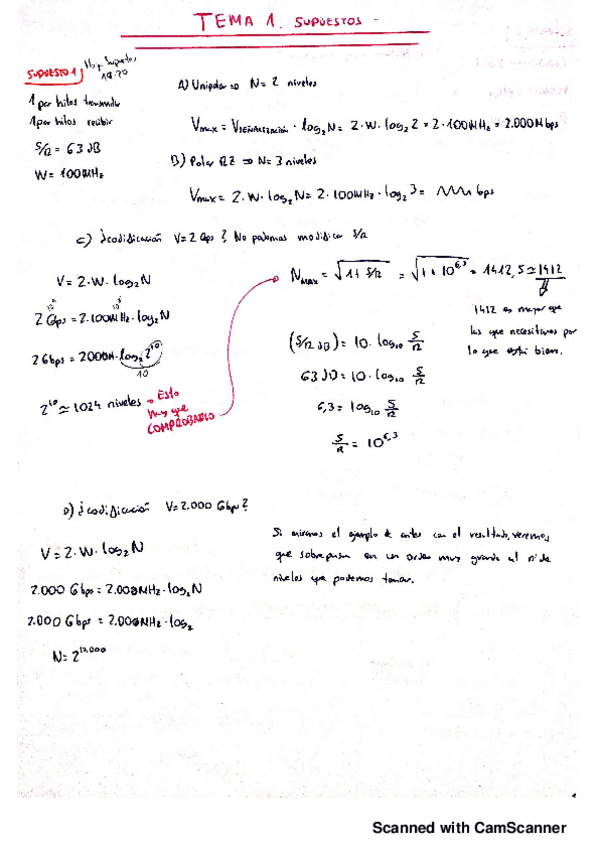 TEMA 1. SUPUESTOS -
SUPUESTO 1
1 par hilos transmitir
1 par hilos recibir
S/R = 63 dB
W = 100MHz
A) Unipolar => N = 2 niveles
Vmax = Vseñalización · log2N = 2 · W · log2 2 = 2 · 100MHz = 2.000Mbps
B) Polar RZ => N = 3 niveles
Vmax = 2 · W · log2N = 2 · 100MHz · log2 3 = Gbps
c) ¿codificación V = 2 Gbps?, No podemos modificar S/R
V = 2 · W · log2N
2 Gbps = 2 · 100MHz · log2N
2 Gbps = 200M · log2 2^10
10
2^10 ≃ 1024 niveles → Esto
hay que
COMPROBARLO
Nmax = √(1 + S/R) = √(1 + 10^6,3) = 1412,5 ≃ 1412
1412 es mayor que
los que necesitamos por
lo que está bien.
(S/R dB) = 10 · log10 S/R
63 dB = 10 · log10 S/R
6,3 = log10 S/R
S/R = 10^6,3
D) ¿codificación V = 2.000 Gbps?
V = 2 · W · log2N
2.000 Gbps = 2.00MHz · log2N
2.000 Gbps = 2.00MHz · log2
N = 2^10.000
Si miramos el ejemplo de antes con el resultado, veremos
que sobrepasa en un orden muy grande el nº de
niveles que podemos tomar.
1
Scanned with CamScanner